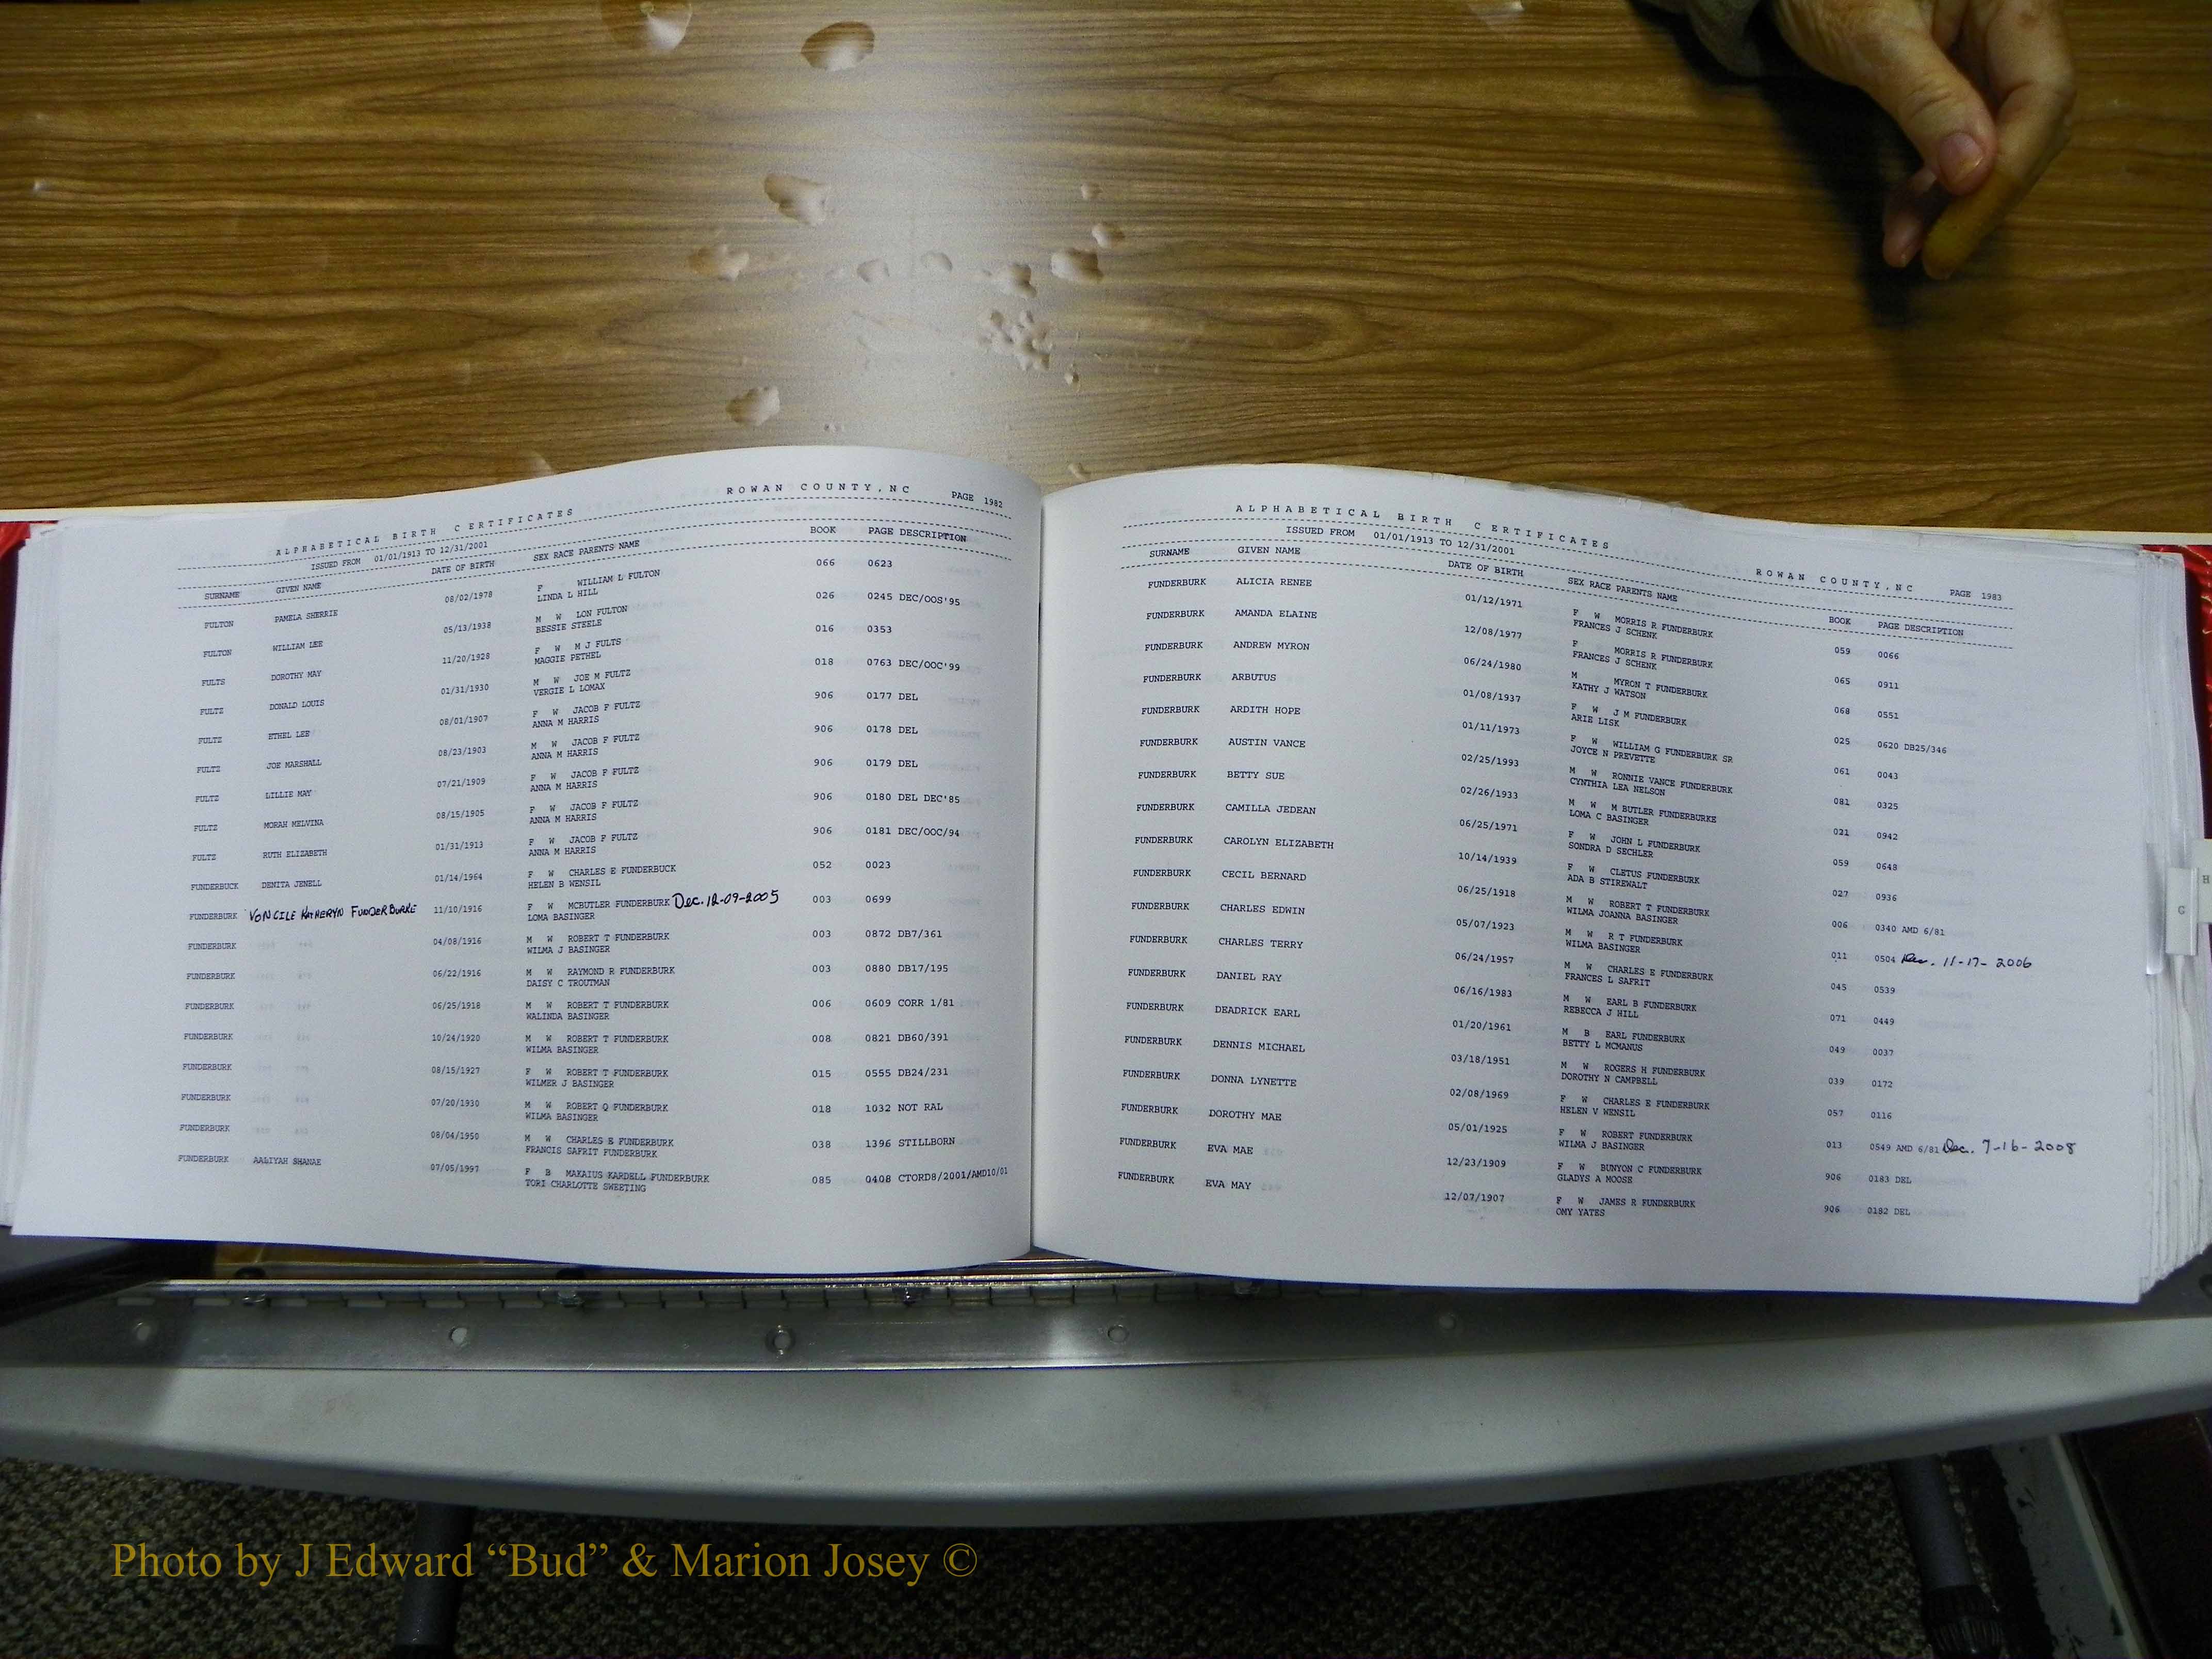 ALPHABETICAL BIRTH CERTIFICATES ROWAN COUNTY,NC PAGE 1982
ISSUED FROM 01/01/1913 TO 12/31/2001
SURNAME GIVEN NAME DATE OF BIRTH SEX RACE PARENTS NAME BOOK PAGE DESCRIPTION
FULTON PAMELA SHERRIE 08/02/1978 F WILLIAM L FULTON 066 0623
LINDA L HILL
FULTON WILLIAM LEE 05/13/1938 M W LON FULTON 026 0245 DEC/OOS'95
BESSIE STEELE
FULTS DOROTHY MAY 11/20/1928 F W M J FULTS 016 0353
MAGGIE PETHEL
FULTZ DONALD LOUIS 01/31/1930 M W JOE M FULTZ 018 0763 DEC/OOC'99
VERGIE L LOMAX
FULTZ ETHEL LEE 08/01/1907 F W JACOB F FULTZ 906 0177 DEL
ANNA M HARRIS
FULTZ JOE MARSHALL 08/23/1903 M W JACOB F FULTZ 906 0178 DEL
ANNA M HARRIS
FULTZ LILLIE MAY 07/21/1909 F W JACOB F FULTZ 906 0179 DEL
ANNA M HARRIS
FULTZ MORAH MELVINA 08/15/1905 F W JACOB F FULTZ 906 0180 DEL DEC'85
ANNA M HARRIS
FULTZ RUTH ELIZABETH 01/31/1913 F W JACOB F FULTZ 906 0181 DEC/OOC/94
ANNA M HARRIS
FUNDERBUCK DENITA JENELL 01/14/1964 F W CHARLES E FUNDERBUCK 052 0023
HELEN B WENSIL
FUNDERBURK VONCILE KATHERYN FUNDERBURKE 11/10/1916 F W MCBUTLER FUNDERBURK Dec. 12-09-2005 003 0699
LOMA BASINGER
FUNDERBURK 04/08/1916 M W ROBERT T FUNDERBURK 003 0872 DB7/361
WILMA J BASINGER
FUNDERBURK 06/22/1916 M W RAYMOND R FUNDERBURK 003 0880 DB17/195
DAISY C TROUTMAN
FUNDERBURK 06/25/1918 M W ROBERT T FUNDERBURK 006 0609 CORR 1/81
WALINDA BASINGER
FUNDERBURK 10/24/1920 M W ROBERT T FUNDERBURK 008 0821 DB60/391
WILMA BASINGER
FUNDERBURK 08/15/1927 F W ROBERT T FUNDERBURK 015 0555 DB24/231
WILMER J BASINGER
FUNDERBURK 07/20/1930 M W ROBERT Q FUNDERBURK 018 1032 NOT RAL
WILMA BASINGER
FUNDERBURK 08/04/1950 M W CHARLES E FUNDERBURK 038 1396 STILLBORN
FRANCIS SAFRIT FUNDERBURK
FUNDERBURK AALIYAH SHANAE 07/05/1997 F B MAKAIUS KARDELL FUNDERBURK 085 0408 CTORD8/2001/AMD10/01
TORI CHARLOTTE SWEETING
ALPHABETICAL BIRTH CERTIFICATES ROWAN COUNTY,NC PAGE 1983
ISSUED FROM 01/01/1913 TO 12/31/2001
SURNAME GIVEN NAME DATE OF BIRTH SEX RACE PARENTS NAME BOOK PAGE DESCRIPTION
FUNDERBURK ALICIA RENEE 01/12/1971 F W MORRIS R FUNDERBURK 059 0066
FRANCES J SCHENK
FUNDERBURK AMANDA ELAINE 12/08/1977 F MORRIS R FUNDERBURK 065 0911
FRANCES J SCHENK
FUNDERBURK ANDREW MYRON 06/24/1980 M MYRON T FUNDERBURK 068 0551
KATHY J WATSON
FUNDERBURK ARBUTUS 01/08/1937 F W J M FUNDERBURK 025 0620 DB25/346
ARIE LISK
FUNDERBURK ARDITH HOPE 01/11/1973 F W WILLIAM G FUNDERBURK SR 061 0043
JOYCE N PREVETTE
FUNDERBURK AUSTIN VANCE 02/25/1993 M W RONNIE VANCE FUNDERBURK 081 0325
CYNTHIA LEA NELSON
FUNDERBURK BETTY SUE 02/26/1933 M W M BUTLER FUNDERBURKE 021 0942
LOMA C BASINGER
FUNDERBURK CAMILLA JEDEAN 06/25/1971 F W JOHN L FUNDERBURK 059 0648
SONDRA D SECHLER
FUNDERBURK CAROLYN ELIZABETH 10/14/1939 F W CLETUS FUNDERBURK 027 0936
ADA B STIREWALT
FUNDERBURK CECIL BERNARD 06/25/1918 M W ROBERT T FUNDERBURK 006 0340 AMD 6/81
WILMA JOANNA BASINGER
FUNDERBURK CHARLES EDWIN 05/07/1923 M W R T FUNDERBURK 011 0504 Dec. 11-17-2006
WILMA BASINGER
FUNDERBURK CHARLES TERRY 06/24/1957 M W CHARLES E FUNDERBURK 045 0539
FRANCES L SAFRIT
FUNDERBURK DANIEL RAY 06/16/1983 M W EARL B FUNDERBURK 071 0449
REBECCA J HILL
FUNDERBURK DEADRICK EARL 01/20/1961 M B EARL FUNDERBURK 049 0037
BETTY L MCMANUS
FUNDERBURK DENNIS MICHAEL 03/18/1951 M W ROGERS H FUNDERBURK 039 0172
DOROTHY N CAMPBELL
FUNDERBURK DONNA LYNETTE 02/08/1969 F W CHARLES E FUNDERBURK 057 0116
HELEN V WENSIL
FUNDERBURK DOROTHY MAE 05/01/1925 F W ROBERT FUNDERBURK 013 0549 AMD 6/81 Dec. 7-16-2008
WILMA J BASINGER
FUNDERBURK EVA MAE 12/23/1909 F W BUNYON C FUNDERBURK 906 0183 DEL
GLADYS A MOOSE
FUNDERBURK EVA MAY 12/07/1907 F W JAMES R FUNDERBURK 906 0182 DEL
OMY YATES
H
G
Photo by J Edward “Bud” & Marion Josey ©